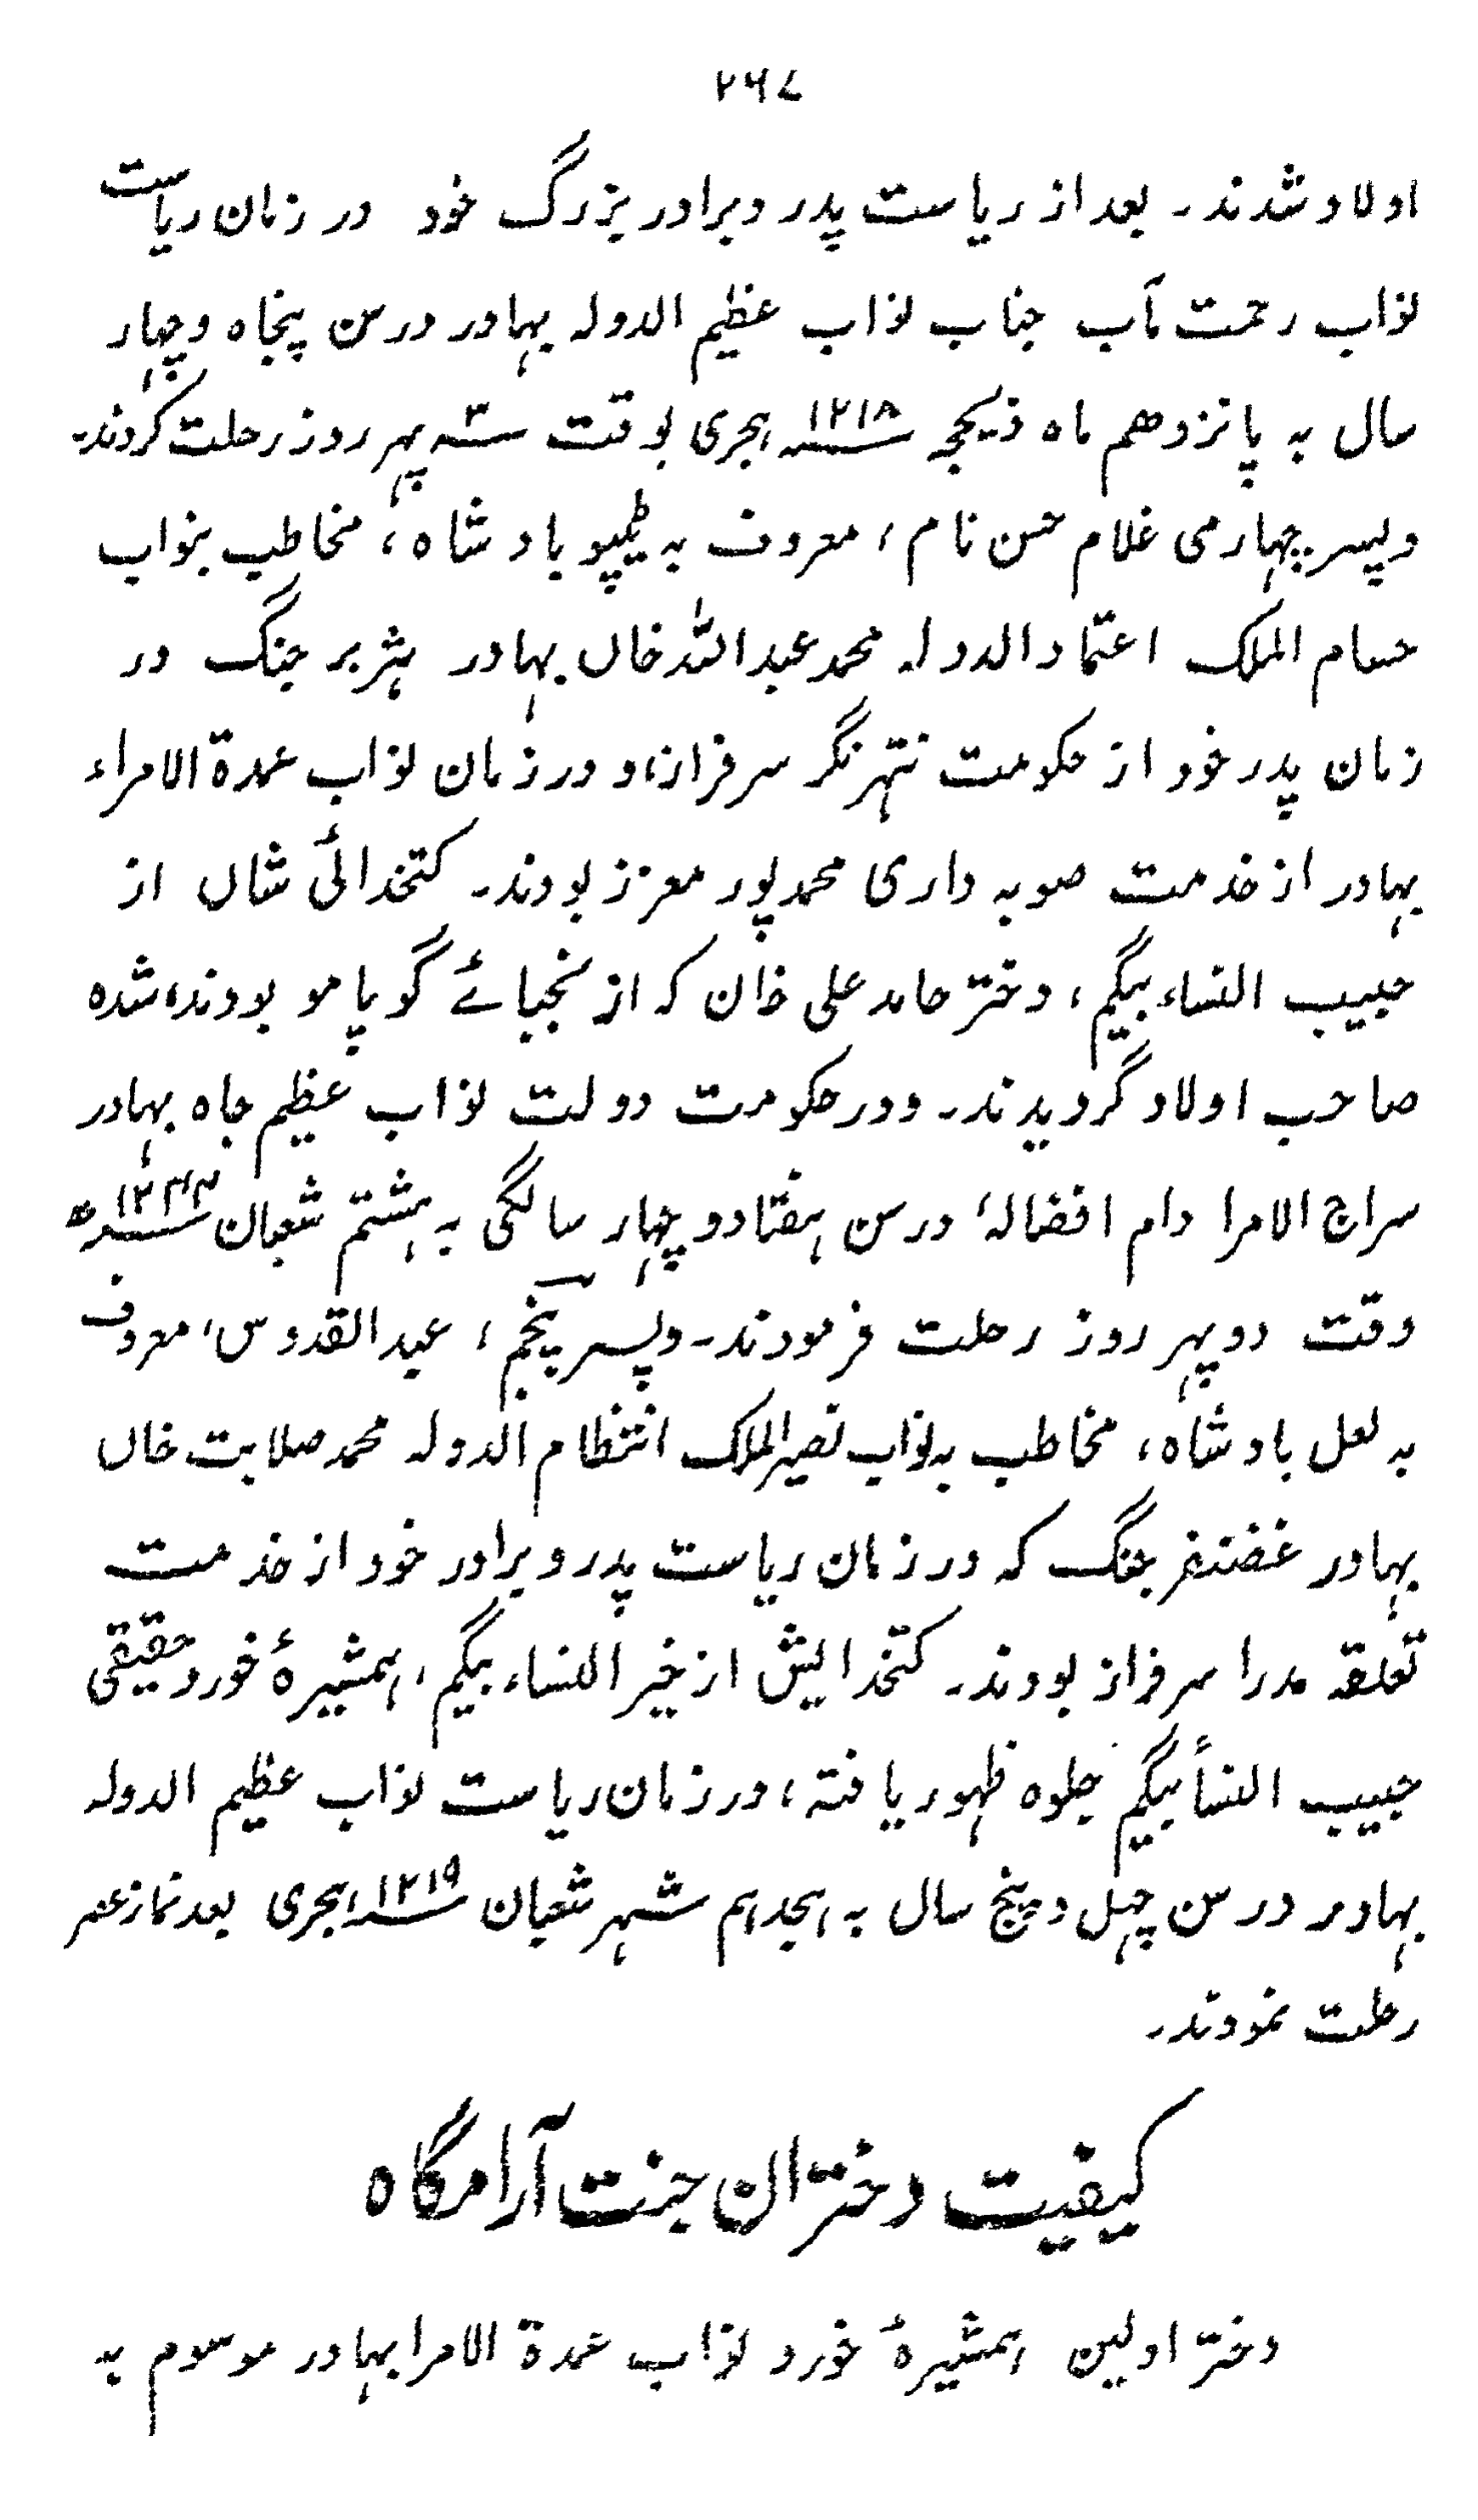 ۲۶۷
اولاد شدند۔ بعد از ریاست پدر و برادر بزرگ خود در زمان ریاست
نواب رحمت مآب جناب نواب عظیم الدولہ بہادر در سن پنجاہ و چہار
سال بہ پانزدھم ماہ ذیحجہ ۱۲۱۸؁ ہجری بوقت سہ پہر روز رحلت کردند۔
و پسر چہارمی غلام حسن نام، معروف بہ ٹیپو بادشاہ، مخاطب بنواب
حسام الملک اعتماد الدولہ محمد عبداللہ خاں بہادر ہژبر جنگ در
زمان پدر خود از حکومت نتہرنگر سرفراز، و در زمان نواب عمدۃ الامراء
بہادر از خدمت صوبہ داری محمد پور معزز بودند۔ کتخدائی شاں از
حبیب النساء بیگم، دختر حامد علی خان کہ از نجبائے گوپامو بودند، شدہ
صاحب اولاد گردیدند۔ و در حکومت دولت نواب عظیم جاہ بہادر
سراج الامرا دام افضالہٗ در سن ہفتاد و چہار سالگی بہ ہشتم شعبان ۱۲۴۳؁ھ
وقت دوپہر روز رحلت فرمودند۔ و پسر پنجم، عبد القدوس، معروف
بہ لعل بادشاہ، مخاطب بہ نواب نصیر الملک انتظام الدولہ محمد صلابت خاں
بہادر غضنفر جنگ کہ در زمان ریاست پدر و برادر خود از خدمت
تعلقہ مدرا سرفراز بودند۔ کتخدایش از خیر النساء بیگم، ہمشیرۂ خورد حقیقی
حبیب النسأ بیگم جلوہ ظہور یافتہ، در زمان ریاست نواب عظیم الدولہ
بہادر در سن چہل و پنج سال بہ ہجدہم شہر شعبان ۱۲۱۹؁ ہجری بعد نماز عصر
رحلت نمودند۔
کیفیت دختران جنت آرامگاہ
دختر اولین ہمشیرۂ خورد نواب عمدۃ الامرا بہادر موسوم بہ